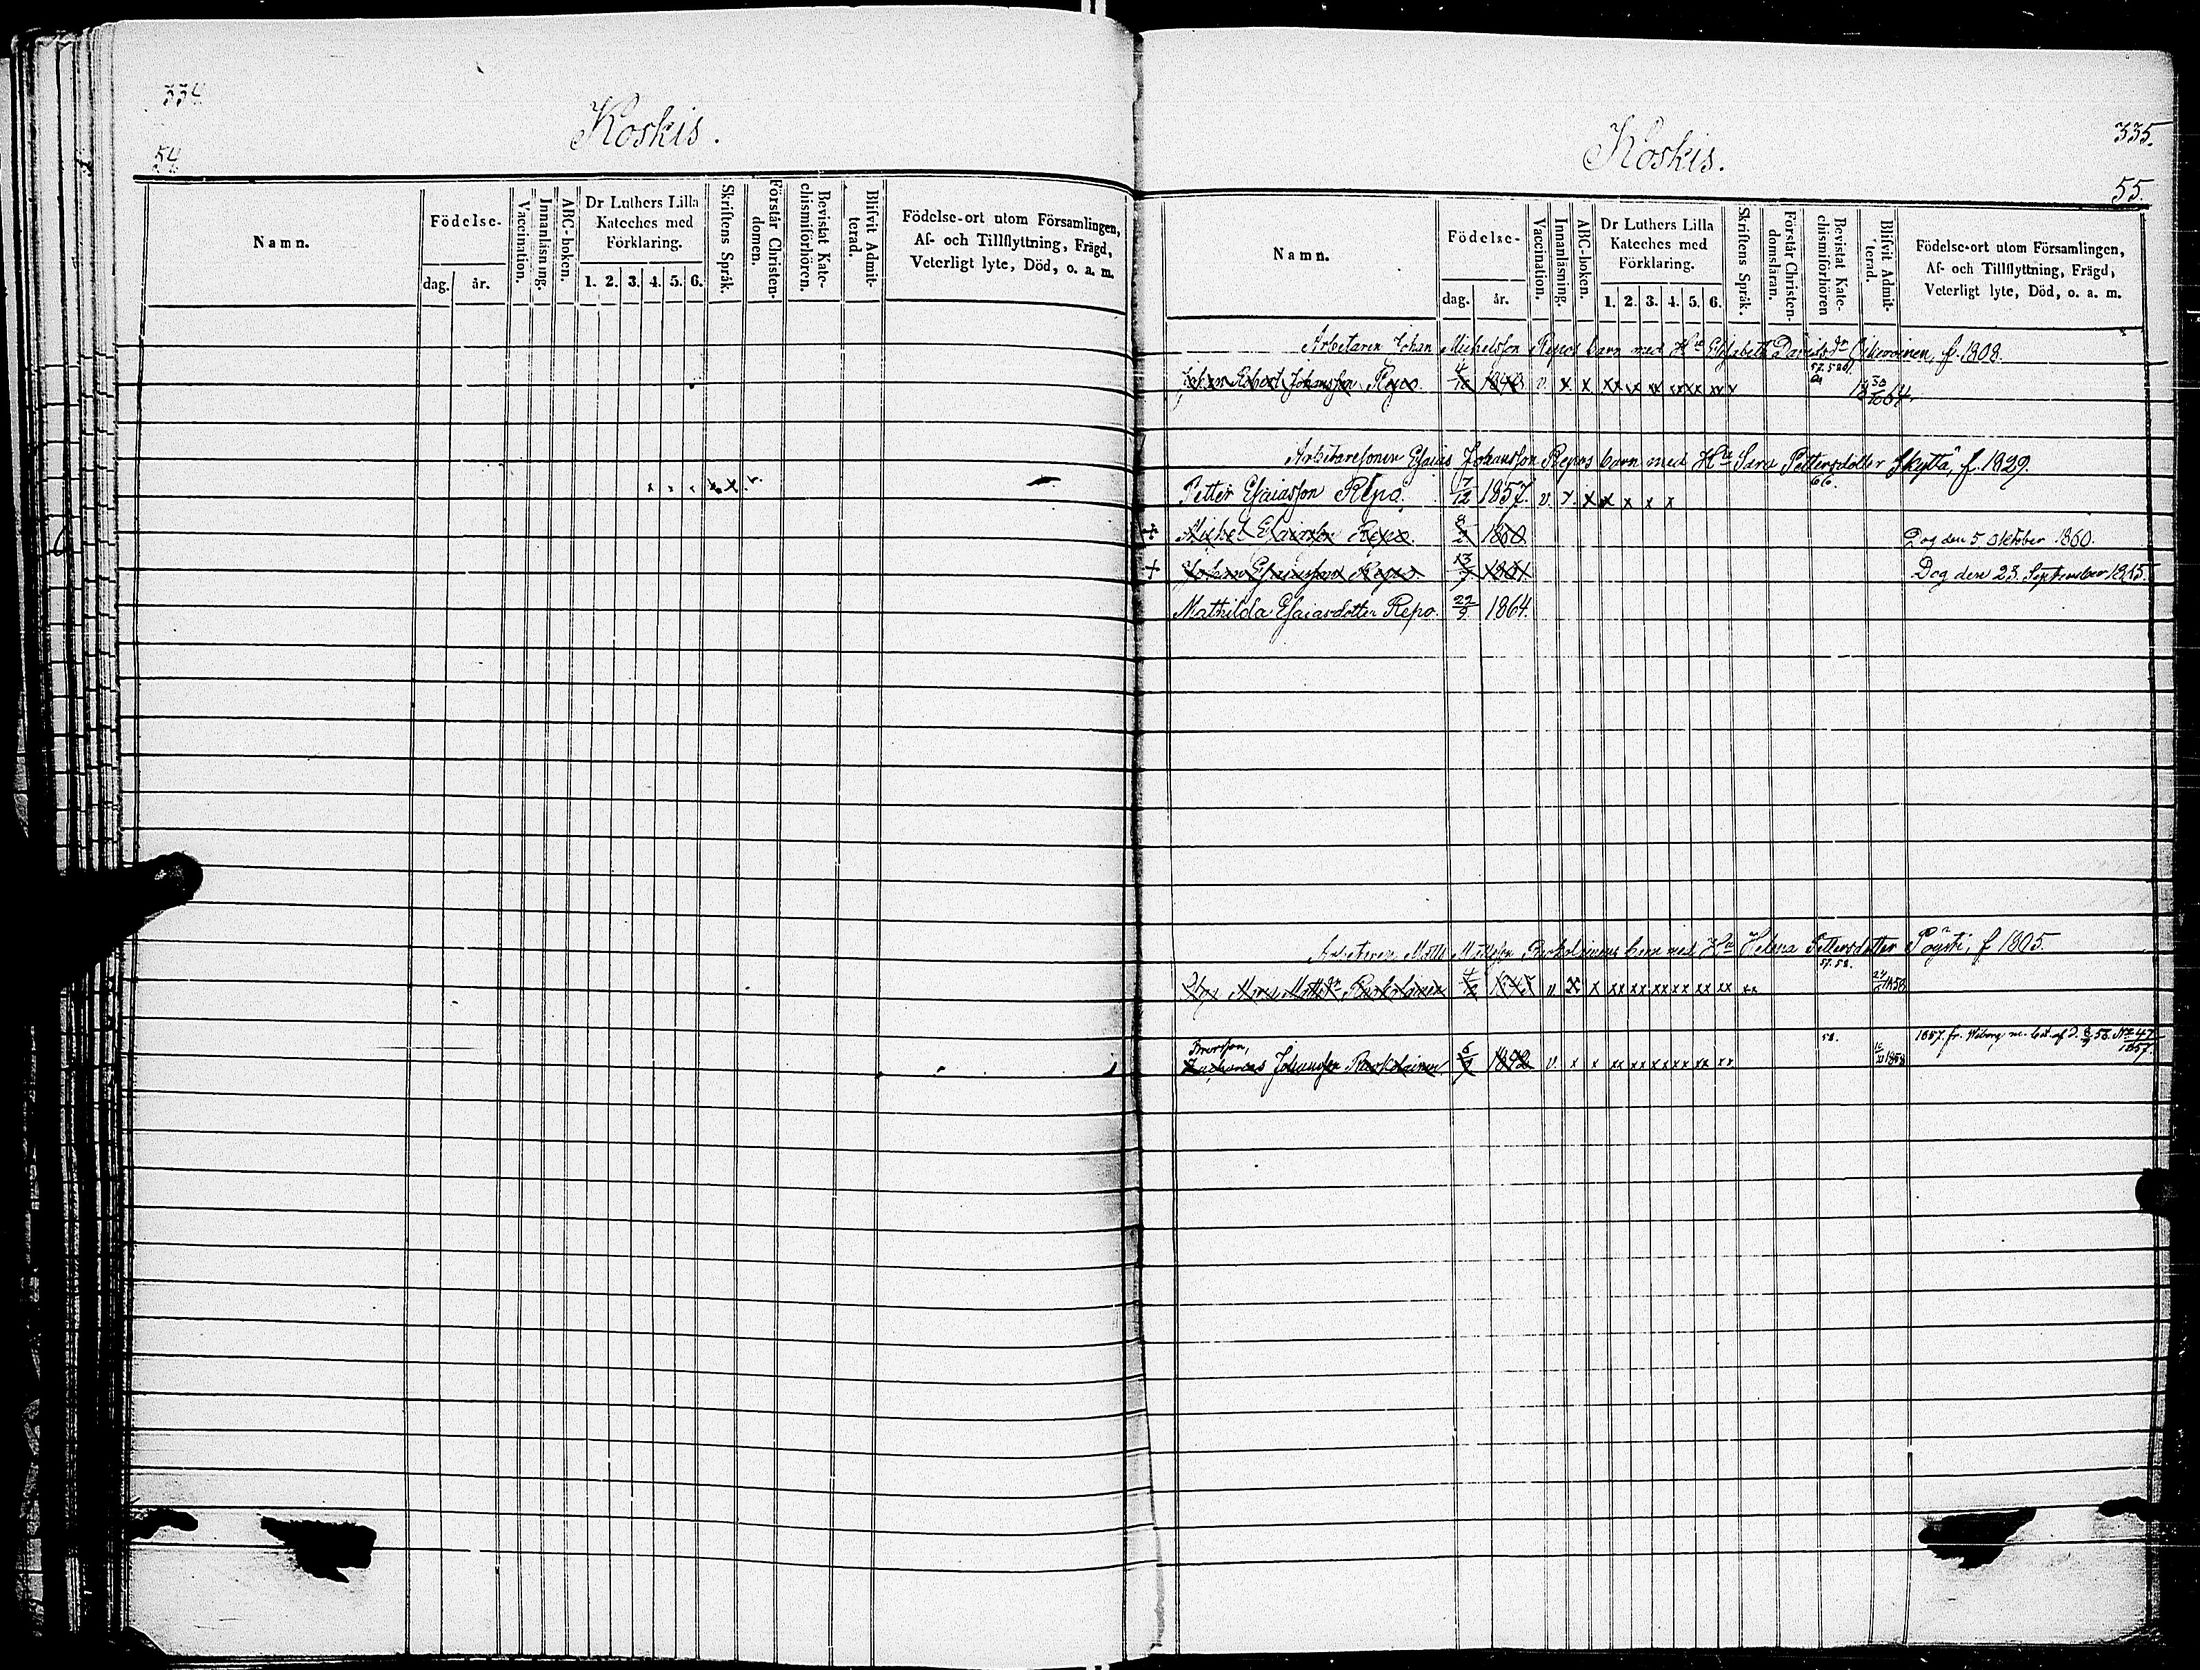 334
Koskis.
54
Namn.
Födelse-
dag.
år.
Vaccination.
Innanläsning.
ABC-boken.
Dr Luthers Lilla
Kateches med
Förklaring.
1. 2. 3. 4. 5. 6.
Skriftens Språk.
Förstår Christen-
domen.
Bevistat Kate-
chismiförhören.
Blifvit Admit-
terad.
Födelse-ort utom Församlingen,
Af- och Tillflyttning, Frägd,
Veterligt lyte, Död, o. a. m.
335.
Koskis.
55.
Namn.
Födelse-
dag.
år.
Vaccination.
Innanläsning.
ABC-boken.
Dr Luthers Lilla
Kateches med
Förklaring.
1. 2. 3. 4. 5. 6.
Skriftens Språk.
Förstår Christen-
domsläran.
Bevistat Kate-
chismiförhören
Blifvit Admit-
terad.
Födelse-ort utom Församlingen,
Af- och Tillflyttning, Frägd,
Veterligt lyte, Död, o. a. m.
Arbetaren Johan Michelsson Repos barn med Hu Elisabeth Davidsdr f. 1808.
Johan Robert Johansson Repo. 1848 v x x xx x xx xx xx xx x 30/10 64.
Arbetaresonen Esaias Johansson Repos barn med Hu Sara Pettersdotter Skyttä, f. 1829.
66.
Petter Esaiasson Repo. 7/12 1857. v. x. x x x x x
+ Michel Esaiasson Repo. 1860 Dog den 5 oktober 1860.
+ Johan Esaiasson Repo 13/7 1861 Dog den 23. September 1865.
Mathilda Esaiasdotter Repo. 22/9 1864.
Arbetaren Matts Mattsson barn med Hu Helena Pettersdotter Pöysti, f 1805.
57. 58.
Maria Mattsdr v x x xx xx xx xx xx xx xx 1858
Brorson,
58.
1857. fr. Wiborg m. bet. af d. 58. No 47
1857.
Zacharias Johansson 1842 v. x x xx xx xx xx xx xx 1858